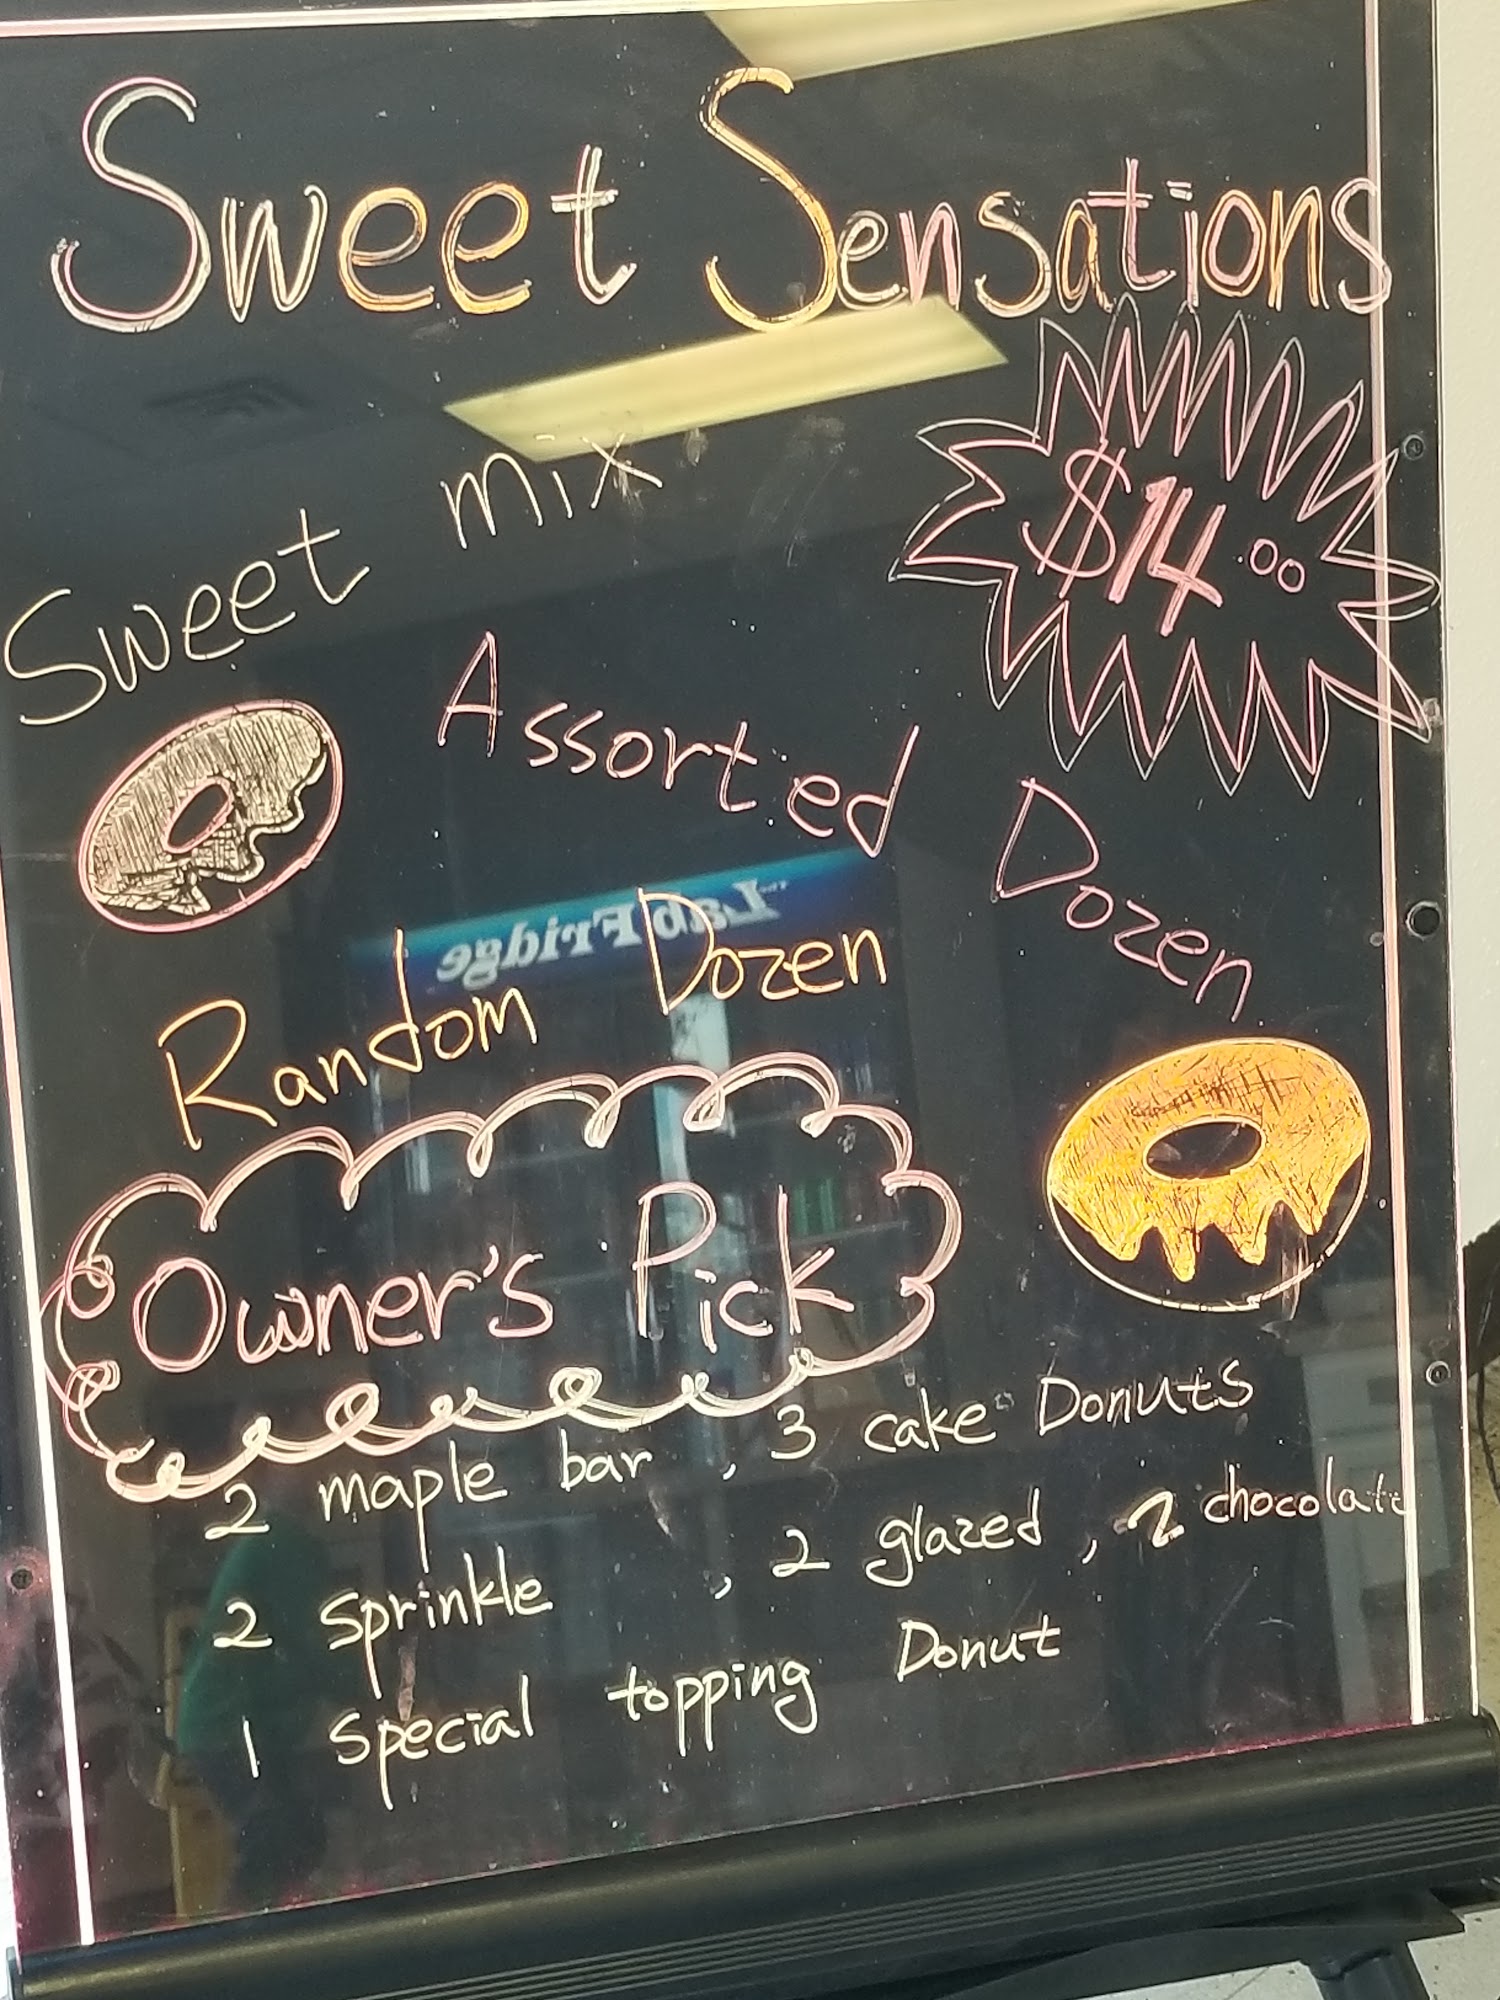 Sweet Sensations
$14.00
Sweet mix
Assorted Dozen
LabFridge
Random Dozen
Owner's Pick
2 maple bar , 3 cake Donuts
2 sprinkle , 2 glazed , 2 chocolate
1 special topping Donut